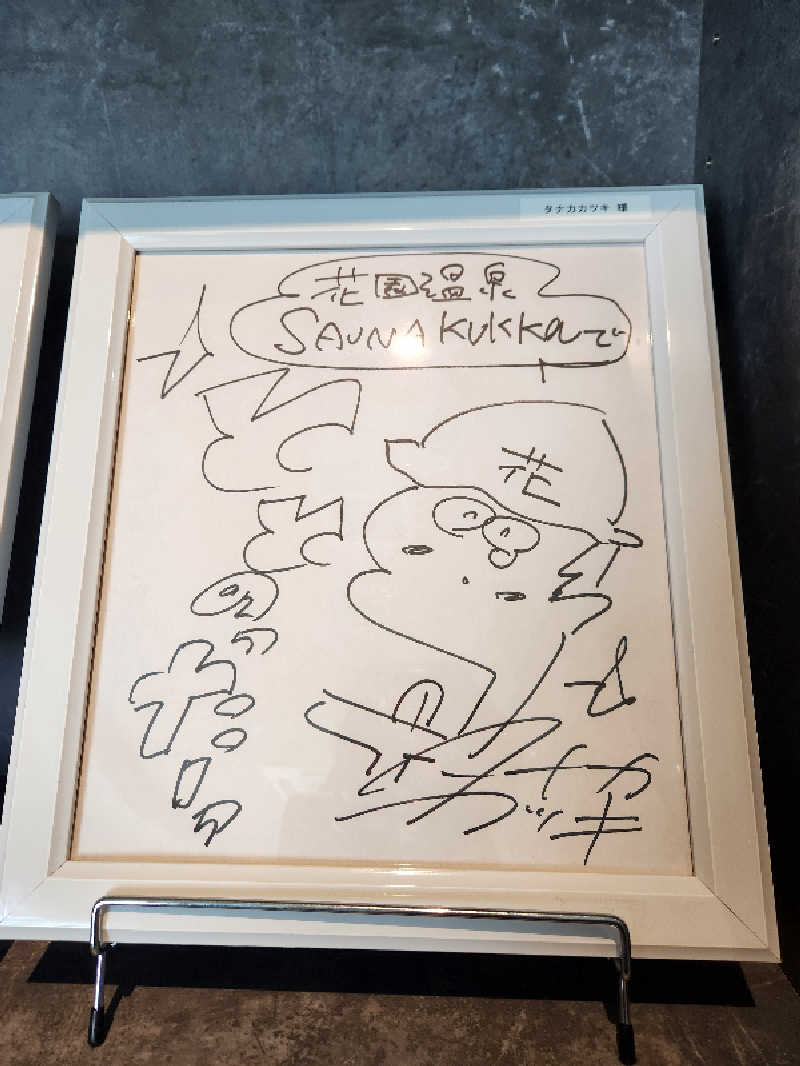 タナカカツキ 様
花園温泉
SAUNA KUKKAで
ととのったー!!
花
タナカ
カツキ